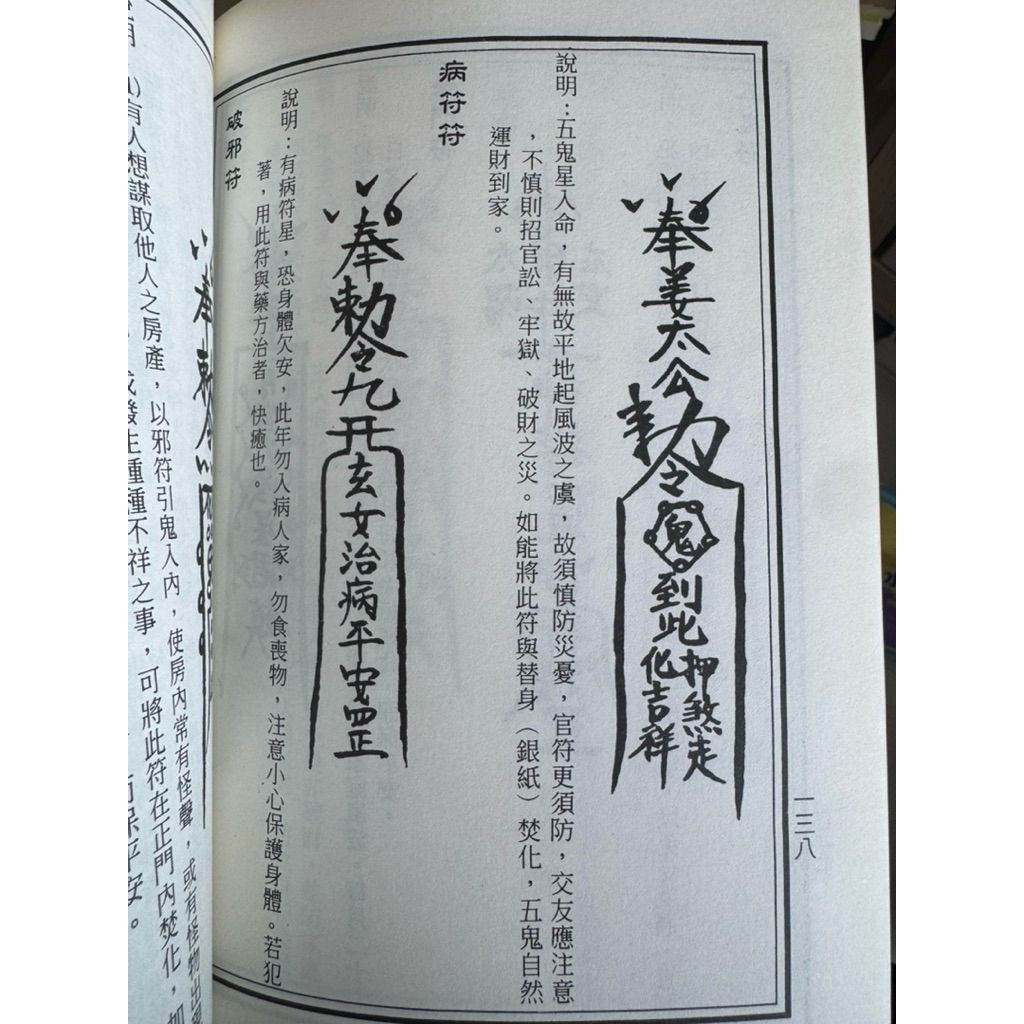 一三八
奉姜太公勅令鬼到此押煞走化吉祥
說明：五鬼星入命，有無故平地起風波之虞，故須慎防災憂，官符更須防，交友應注意
，不慎則招官訟、牢獄、破財之災。如能將此符與替身（銀紙）焚化，五鬼自然
運財到家。
病符符
奉勅令九天玄女治病平安罡
說明：有病符星，恐身體欠安，此年勿入病人家，勿食喪物，注意小心保護身體。若犯
著，用此符與藥方治者，快癒也。
破邪符
奉勅令
有人想謀取他人之房產，以邪符引鬼入內，使房內常有怪聲，或有怪物出現
發生種種不祥之事，可將此符在正門內焚化，如
保平安。